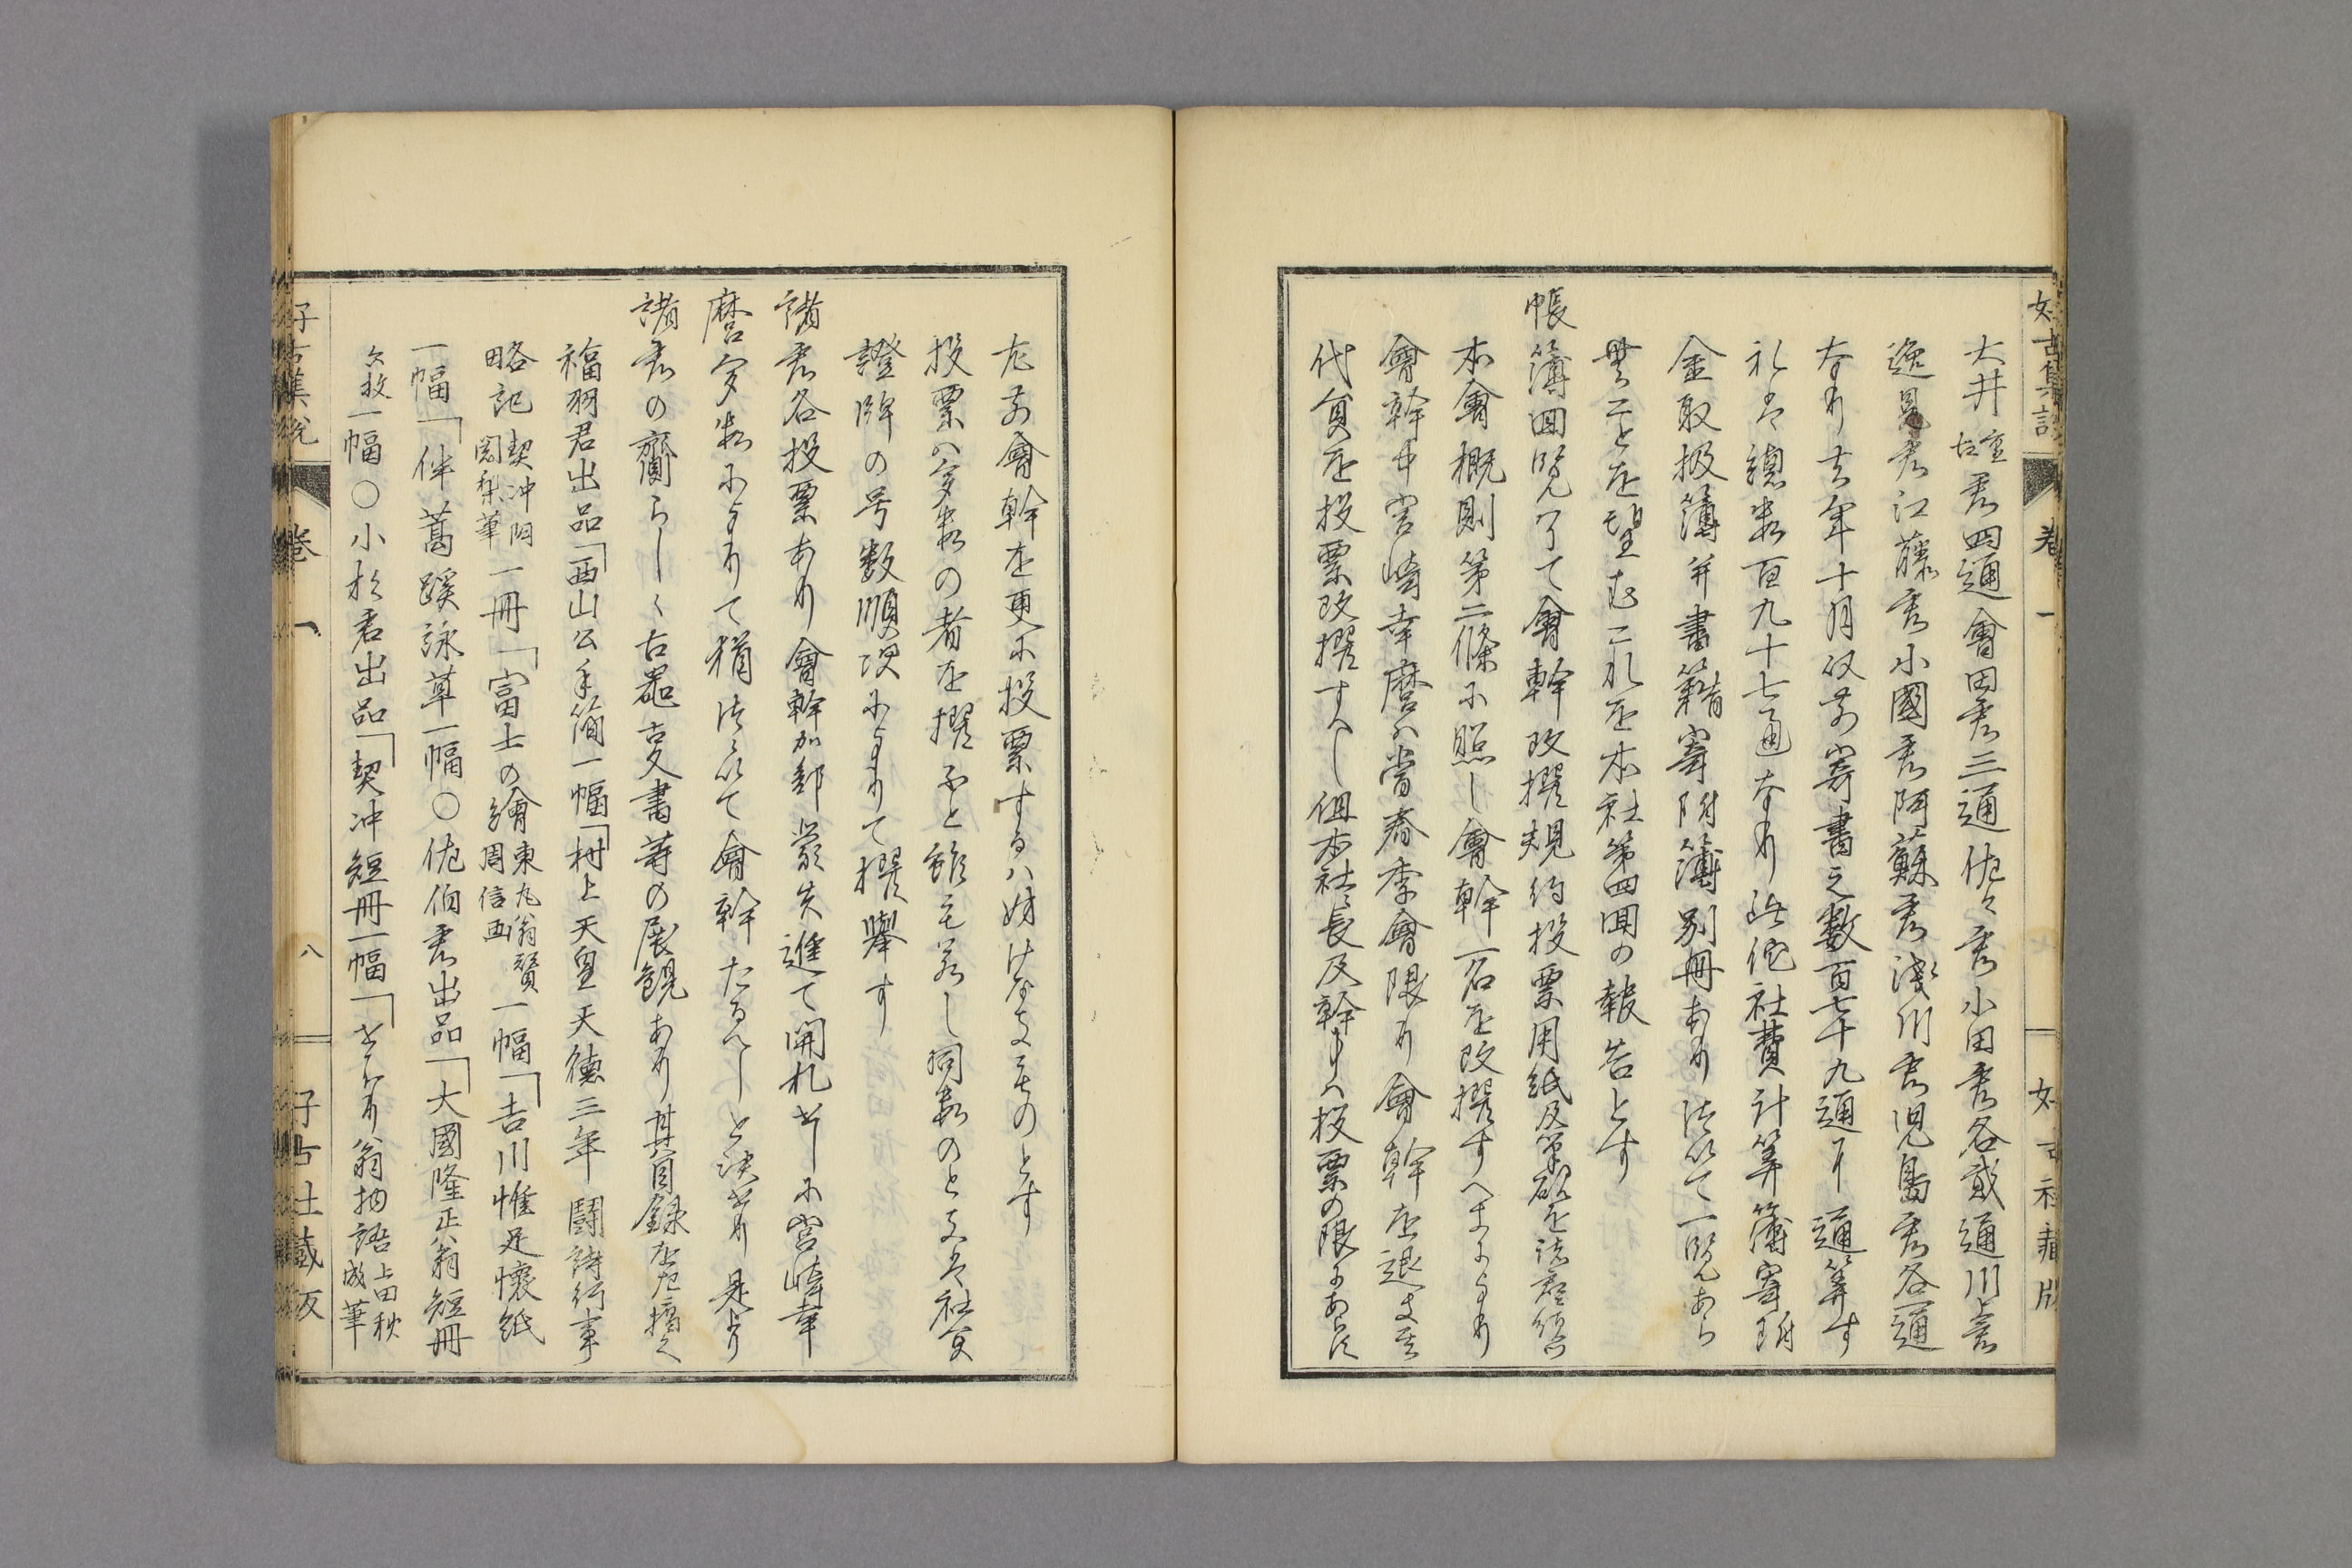 好古集説 卷一 好古社藏版
大井重古君四通會田君三通佐々君小田君各貳通川喜
逸見君江藤君小國君阿蘇君淺川君児島君各一通
なり去年十月以前寄書之數百七十九通に通算す
れは總數百九十七通なり此他社費計算簿寄附
金取扱簿并書籍寄附簿別冊あり依て一覧あら
むことを望むこれを本社第四回の報告とす
帳簿回覧了て會幹改撰規約投票用紙及筆硯を
本會概則第二條に照し會幹一名を改撰すへきによ
り
會幹中宮崎幸麿ハ當春季會限り會幹を退き其
代員を投票改撰すへし但本社長及幹事ハ投票の限にあらす
尤前會幹を更に投票するハ妨けなきものとす
投票ハ多數の者を撰ふと雖も若し同數のときは社員
證牌の号數順次によりて撰擧す
諸君各投票あり會幹加部嚴夫進て開札せしに宮崎幸
麿多數によりて猶依然會幹たるへしと決せり是より
諸君の齎らしゝ古器古文書等の展観あり其目録
福羽君出品「西山公手簡一幅「村上天皇天德三年鬪詩行事
略記契冲阿闍梨筆一冊「富士の繪東丸翁贊周信画一幅「吉川惟足懷紙
一幅「伴蒿蹊詠草一幅○佐伯君出品「大國隆正翁短冊
六枚一幅○小杉君出品「契冲短冊一幅「翁物語上田秋成筆
好古集説 卷一 八 好古社藏版